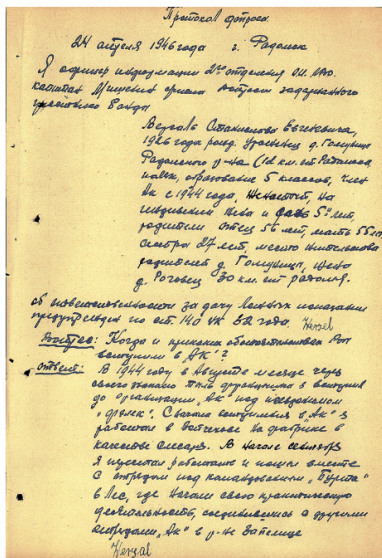 Протокол допроса.
24 апреля 1946 года г. Радомск
Я офицер информации 2го отделения
капитан допросил задержанного
участника банды
Станислава Евгеневича,
1926 года рожд. уроженец д. Голуница
Радомского р-на (12 км. от Радомска
поляк, образование 5 классов, член
Ак с 1944 года, женатый, на
5 лет,
родители отец 56 лет, мать 55 лет
сестра 27 лет, место жительства
родителей д. Голуница, жена
д. Роговец 30 км. от
об ответственности за дачу ложных показаний
предупрежден по ст. 140 УК 32 года. Wenzel
Вопрос: Когда и при каких обстоятельствах Вы
вступили в "АК"?
Ответ: В 1944 году в Августе месяце через
своего я вступил
до организации "АК" под псевдонимом
. С начала вступления в "АК" я
работал в на фабрике в
качестве слесаря. В начале сентября
я бросил работать и пошел вместе
с отрядом под командованием "Бурита"
в лес, где начали свою практическую
деятельность, соединившись с другими
отрядами "АК" в р-не
Wenzel